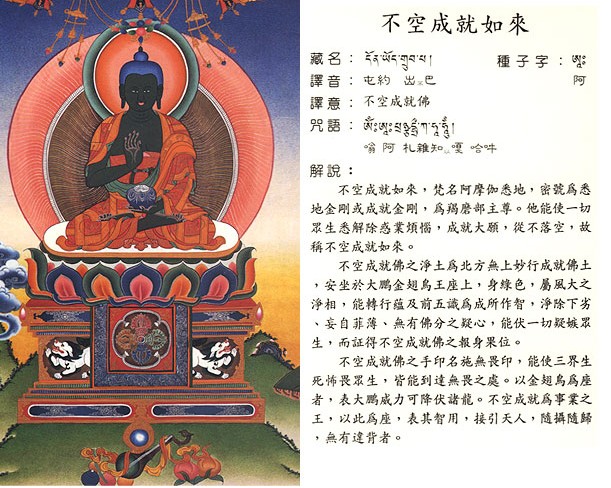 不空成就如來
藏名：དོན་ཡོད་གྲུབ་པ། 種子字：ཨཱཿ
譯音：屯約 出巴 阿
譯意：不空成就佛
咒語：
嗡 阿 札雜知嘎 哈吽
解說：
不空成就如來，梵名阿摩伽悉地，密號爲悉
地金剛或成就金剛，爲羯磨部主尊。他能使一切
眾生悉解除惑業煩惱，成就大願，從不落空，故
稱不空成就如來。
不空成就佛之淨土爲北方無上妙行成就佛土
，安坐於大鵬金翅鳥王座上，身綠色，屬風大之
淨相，能轉行蘊及前五識爲成所作智，淨除下劣
、妄自菲薄、無有佛分之疑心，能伏一切疑嫉眾
生，而証得不空成就佛之報身果位。
不空成就佛之手印名施無畏印，能使三界生
死怖畏眾生，皆能到達無畏之處。以金翅鳥爲座
者，表大鵬威力可降伏諸龍。不空成就爲事業之
王，以此爲座，表其智用，接引天人，隨攝隨歸
，無有違背者。